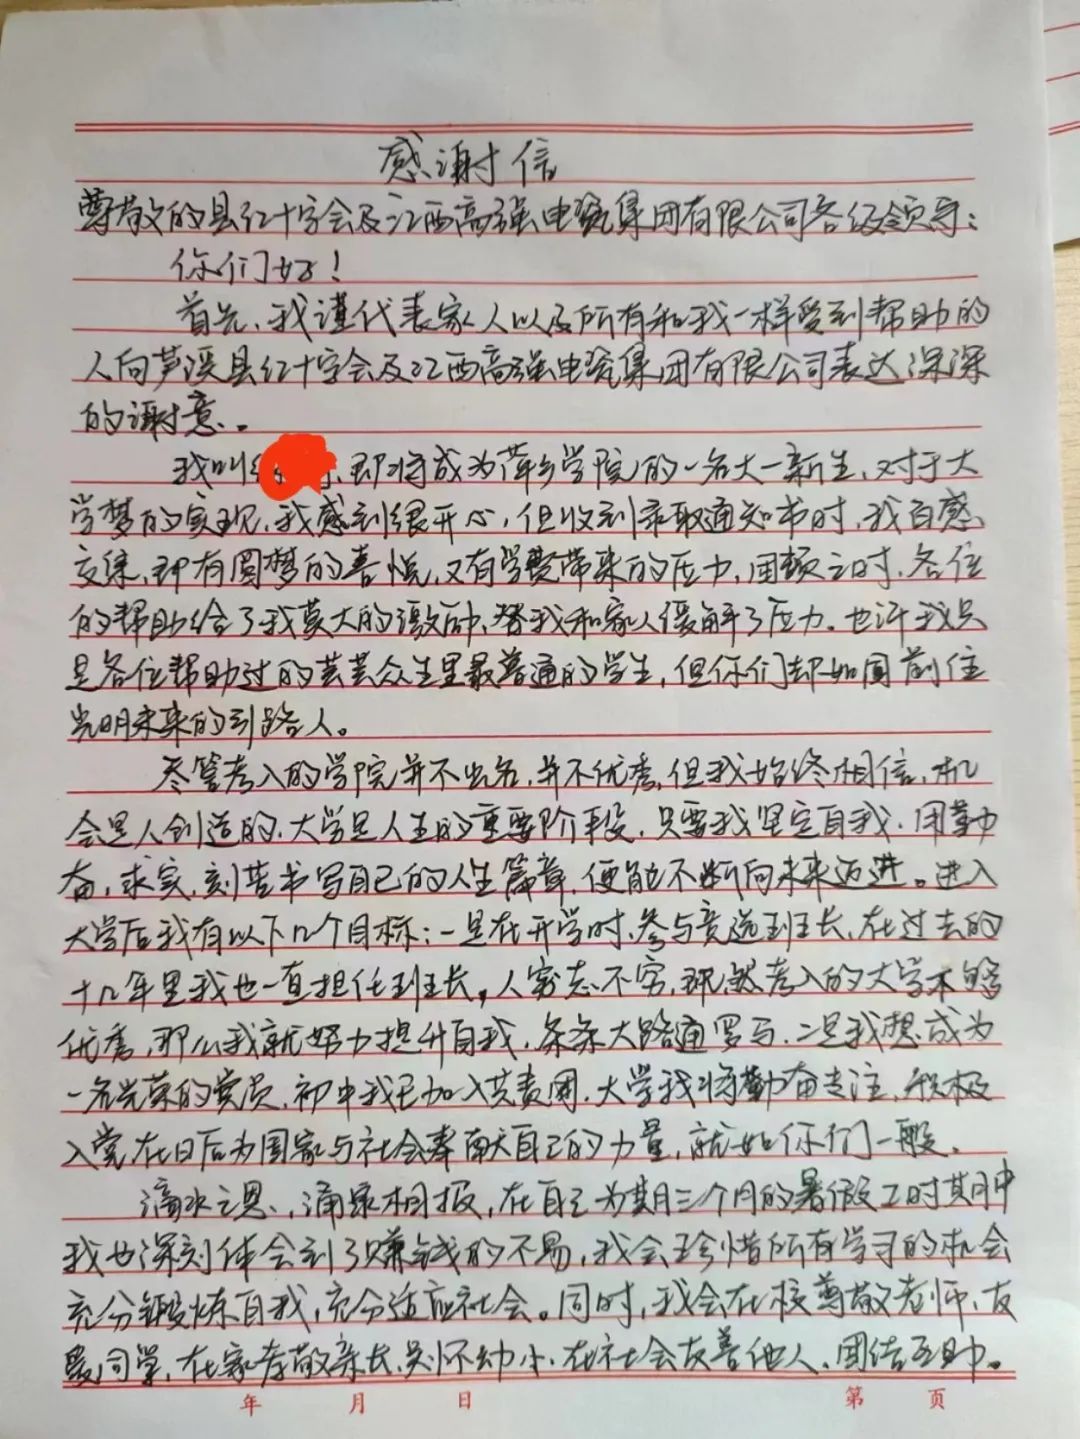 感谢信
尊敬的县红十字会及江西高强电瓷集团有限公司各级领导：
你们好！
首先，我谨代表家人以及所有和我一样受到帮助的
人向芦溪县红十字会及江西高强电瓷集团有限公司表达深深
的谢意。
我叫 即将成为萍乡学院的一名大一新生，对于大
学梦的实现，我感到很开心，但收到录取通知书时，我百感
交集，即有圆梦的喜悦，又有学费带来的压力，困顿之时，各位
的帮助给了我莫大的激励，替我和家人缓解了压力。也许我只
是各位帮助过的芸芸众生里最普通的学生，但你们却如同前往
光明未来的引路人。
尽管考入的学院并不出名，并不优秀，但我始终相信，机
会是人创造的，大学是人生的重要阶段，只要我坚定自我，用勤
奋，求实，刻苦书写自己的人生篇章，便能不断向未来迈进。进入
大学后我有以下几个目标：一是在开学时，参与竞选班长，在过去的
十几年里我也一直担任班长，人穷志不穷，既然考入的大学不够
优秀，那么我就努力提升自我，条条大路通罗马，二是我想成为
一名光荣的党员，初中我已加入共青团，大学我将勤奋专注，积极
入党，在日后为国家与社会奉献自己的力量，就如你们一般。
滴水之恩，涌泉相报，在自己为期三个月的暑假工时期中
我也深刻体会到了赚钱的不易，我会珍惜所有学习的机会
充分锻炼自我，充分适应社会。同时，我会在校尊敬老师，友
爱同学，在家孝敬亲长，关怀幼小，在社会友善他人，团结互助。
年 月 日 第 页